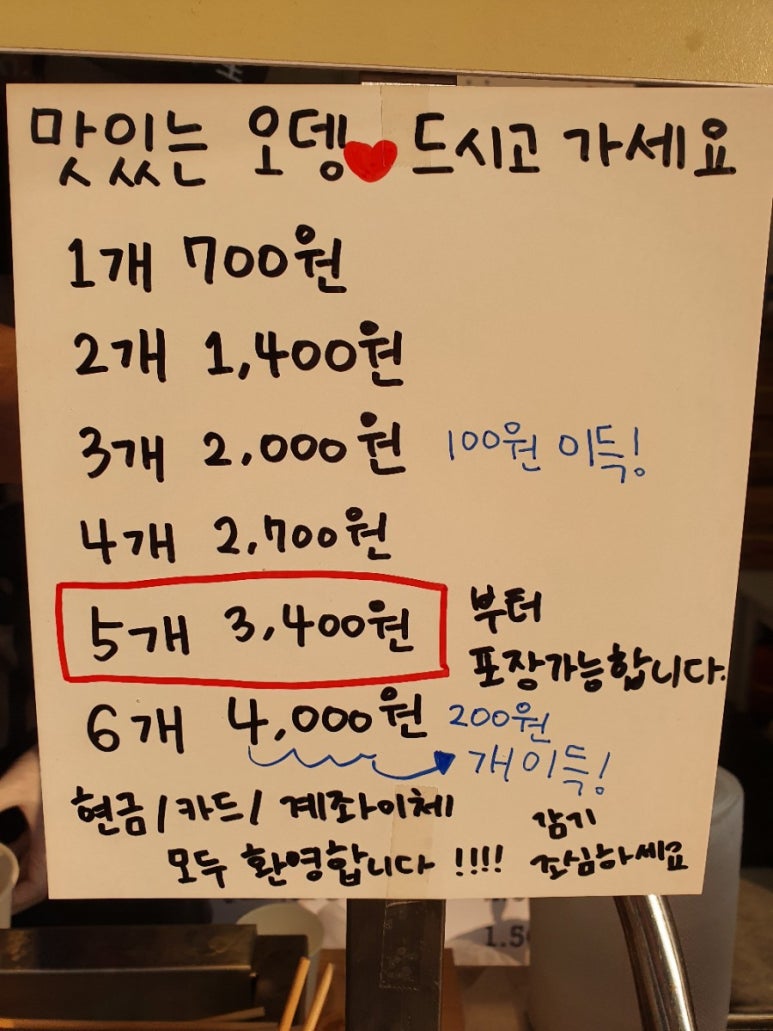 맛있는 오뎅♥드시고 가세요
1개 700원
2개 1,400원
3개 2,000원 100원 이득!
4개 2,700원
5개 3,400원 부터
포장가능합니다.
6개 4,000원 200원
개이득!
현금/카드/계좌이체
모두 환영합니다 !!!!
감기
조심하세요